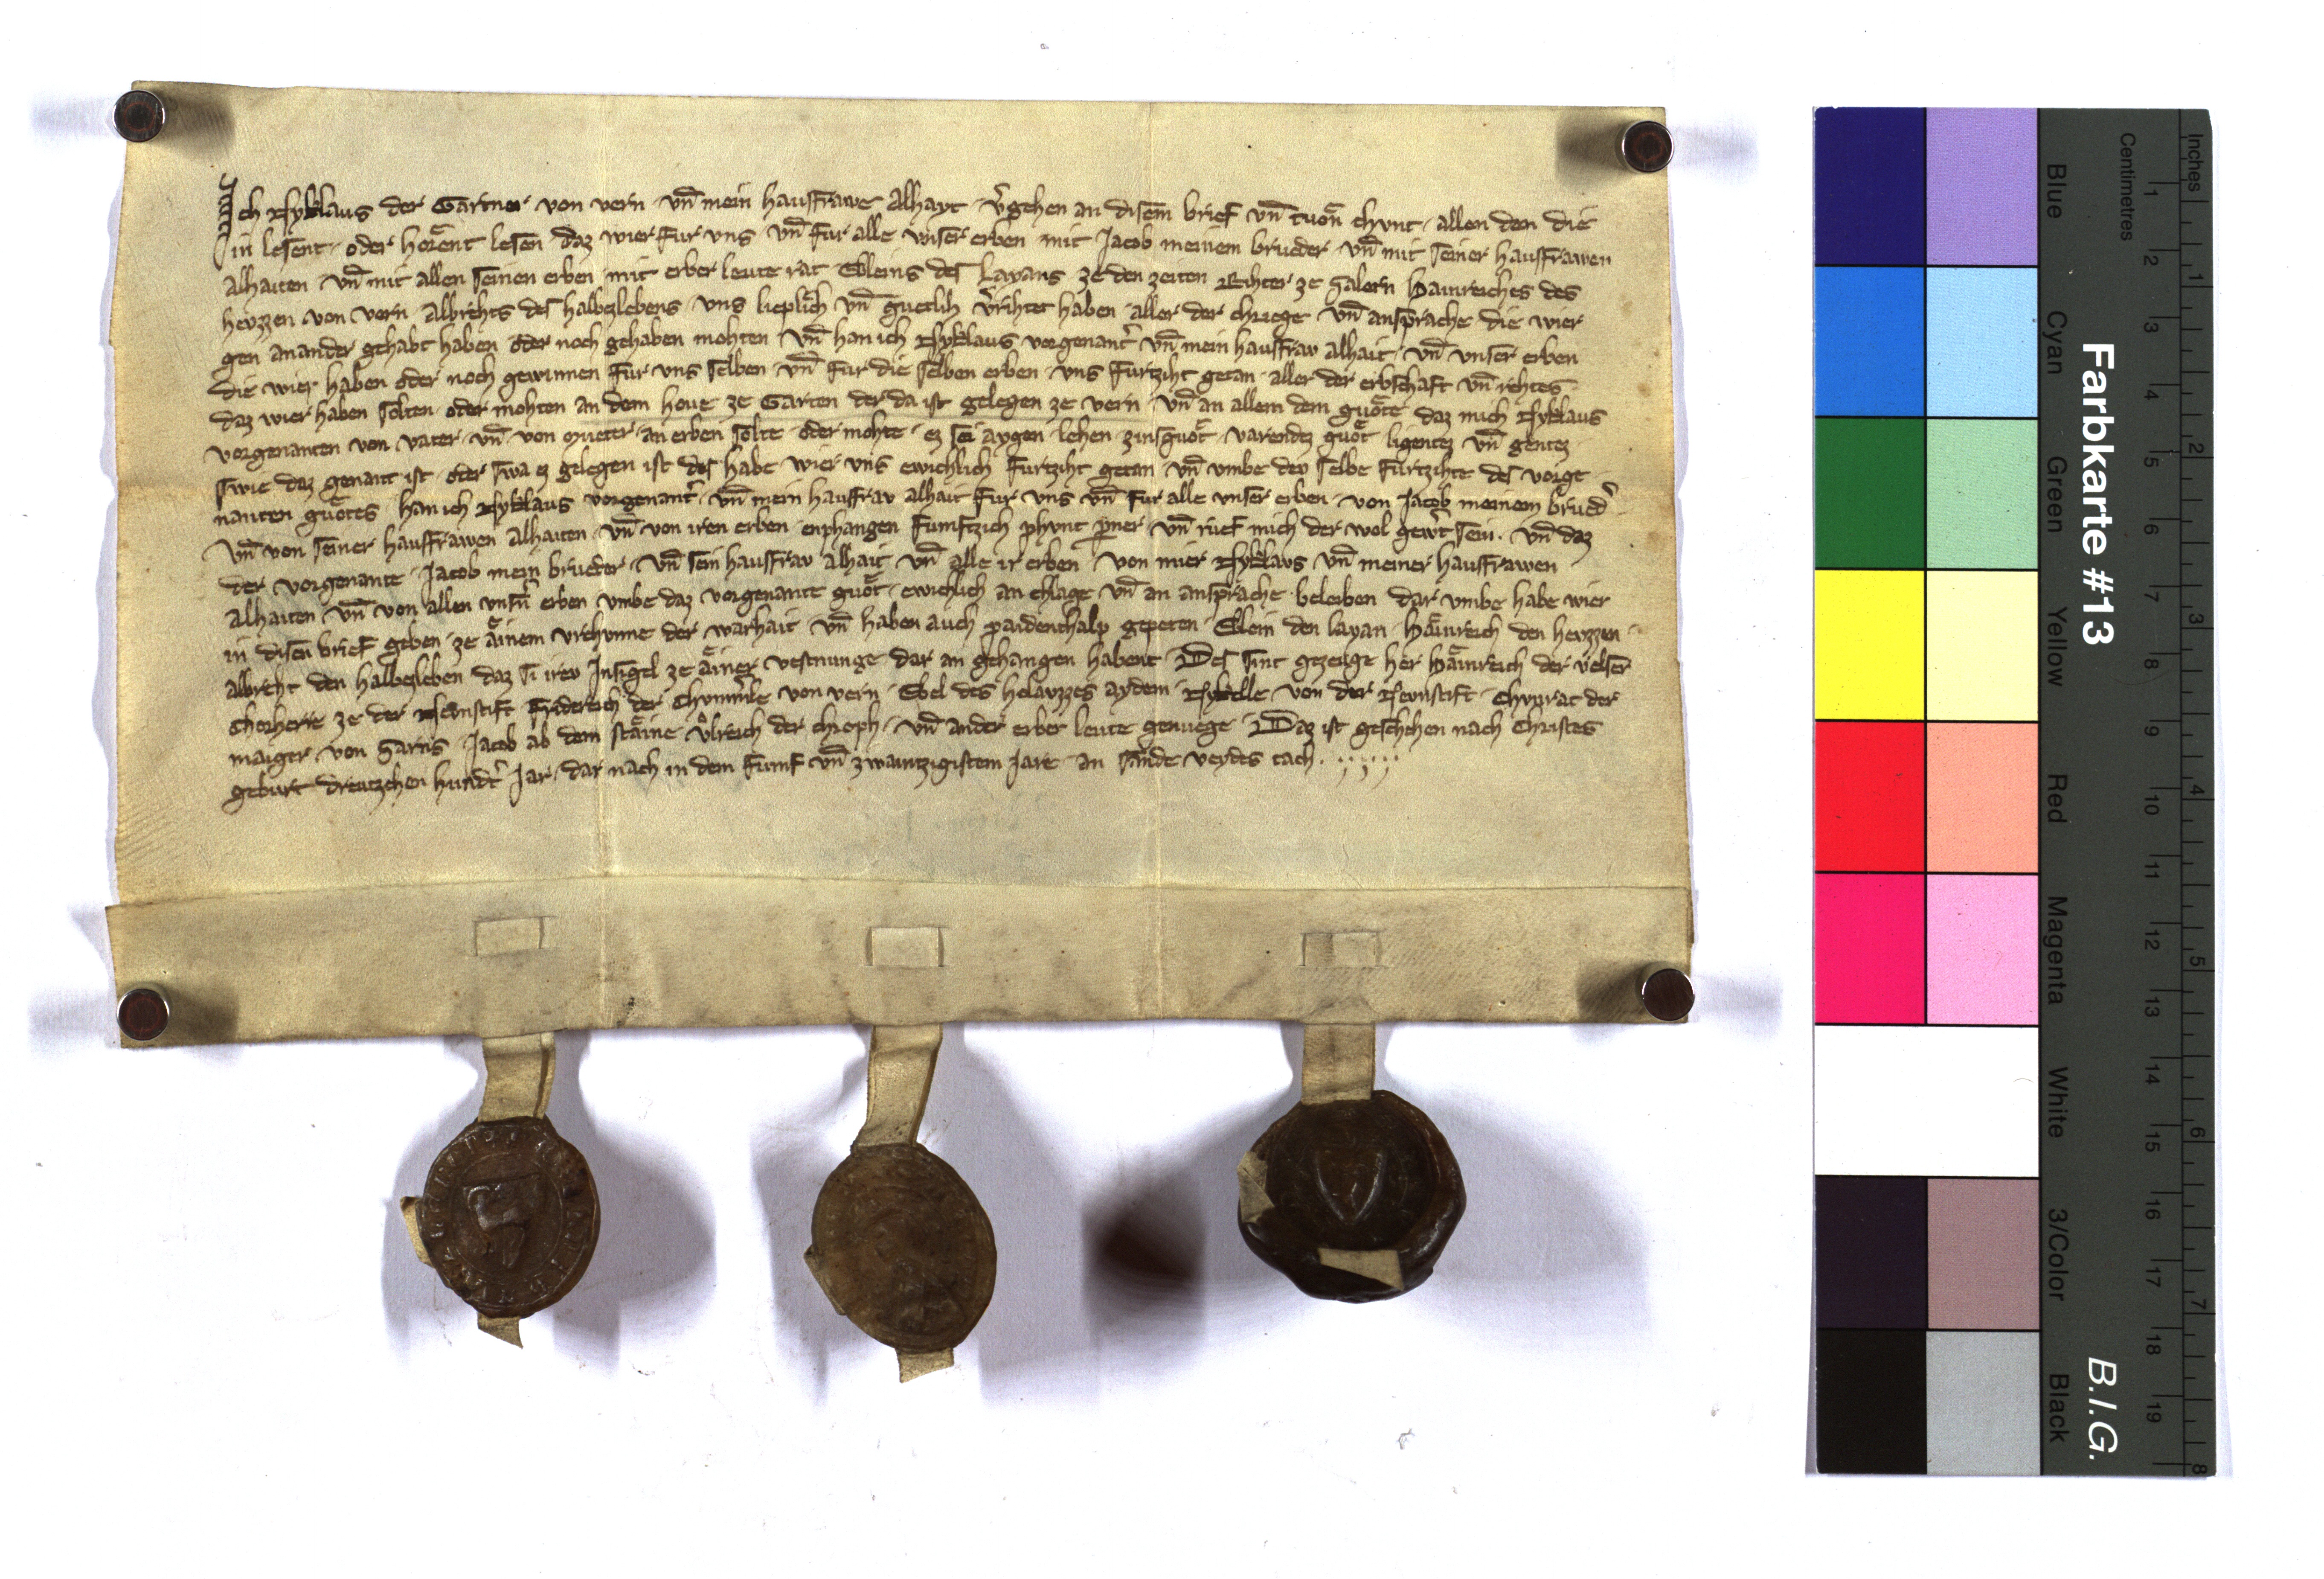 Ich Nyklaus der Gartner von vern vn̄ mein hausfrawe Alhayt v̾gehen an disem brief vn̄ tuon chunt allen den die
in lesent oder horent lesen daz wier fur uns vn̄ fur alle unser erben mit Jacob meinem brueder vn̄ mit seiner hausfrawen
alhaiten vn̄ mit allen seinen erben mit erber leute rat Ebleins des Layans ze den zeiten Rihter ze Salern Hainreiches des
heuzzen von vern Albrehts des halbezlebens uns lieplich vn̄ guetlih v̾rihtet haben aller der chriege vn̄ ansprache die wier
gen anander gehabt haben oder noch gehaben mohten vn̄ han ich Nyklaus vorgenant̾ vn̄ mein hausfrav alhait vn̄ unser erben
die wier haben oder noch gewinnen fur uns selben vn̄ fur die selben erben uns furtziht getan aller der erbschaft vn̄ rehtes
daz wier haben solten oder mohten an dem hove ze Garten der da ist gelegen ze vern vn̄ an allem dem guote daz mich Nyklaus
vorgenanten von vater vn̄ von mueter an erben solte oder mohte ez sei aygen lehen zinsguot varendez guot ligentez vn̄ gentez
swie daz genant ist oder swa ez gelegen ist des habe wier uns ewichlich furtziht getan vn̄ umbe dev selbe furtzihte des vorge
nanten guotes han ich Nyklaus vorgenant̾ vn̄ mein hausfrav alhait fur uns vn̄ fur alle unser erben von Jacob meinem brued̾
vn̄ von seiner hausfrawen Alhaiten vn̄ von iren erben enphangen fumftzich phunt p̄ner vn̄ ruef mich der wol gew̾t sein. vn̄ daz
der vorgenante Jacob mein brueder vn̄ sein hausfrav alhait vn̄ alle ir erben von mier Nyklaus vn̄ meiner hausfrawen
Alhaiten vn̄ von allen unsn̾ erben umbe daz vorgenante guot ewichlich an chlage vn̄ an ansprache beleiben dar umbe habe wier
in disen brief geben ze ainem urchunne der warhait vn̄ haben auch paidenthalp gepeten Eblein den layan Hainreich den heuzzen
albreht den halbezleben daz si irev Insigel ze ainer vestnunge dar an gehangen habent Des sint gezeuge her Hainreich der velser
Chorherre ze der Newnstift Fridereich der Chumerle von vern Ebel des helauzzes aydem Nykelle von der Newnstift Chunrat der
maiger von Garns Jacob ab dem staine Ulreich der chroph vn̄ ander erber leute genuege Daz ist geschehen nach Christes
geburt dreutzehen hundt̾ Jar dar nach in dem fumf vn̄ zwaintzigistem Jare an sande veydes tach.
Farbkarte #13
B.I.G.
Centimetres
Inches
Blue
Cyan
Green
Yellow
Red
Magenta
White
3/Color
Black
1 2 3 4 5 6 7 8 9 10 11 12 13 14 15 16 17 18 19
1 2 3 4 5 6 7 8